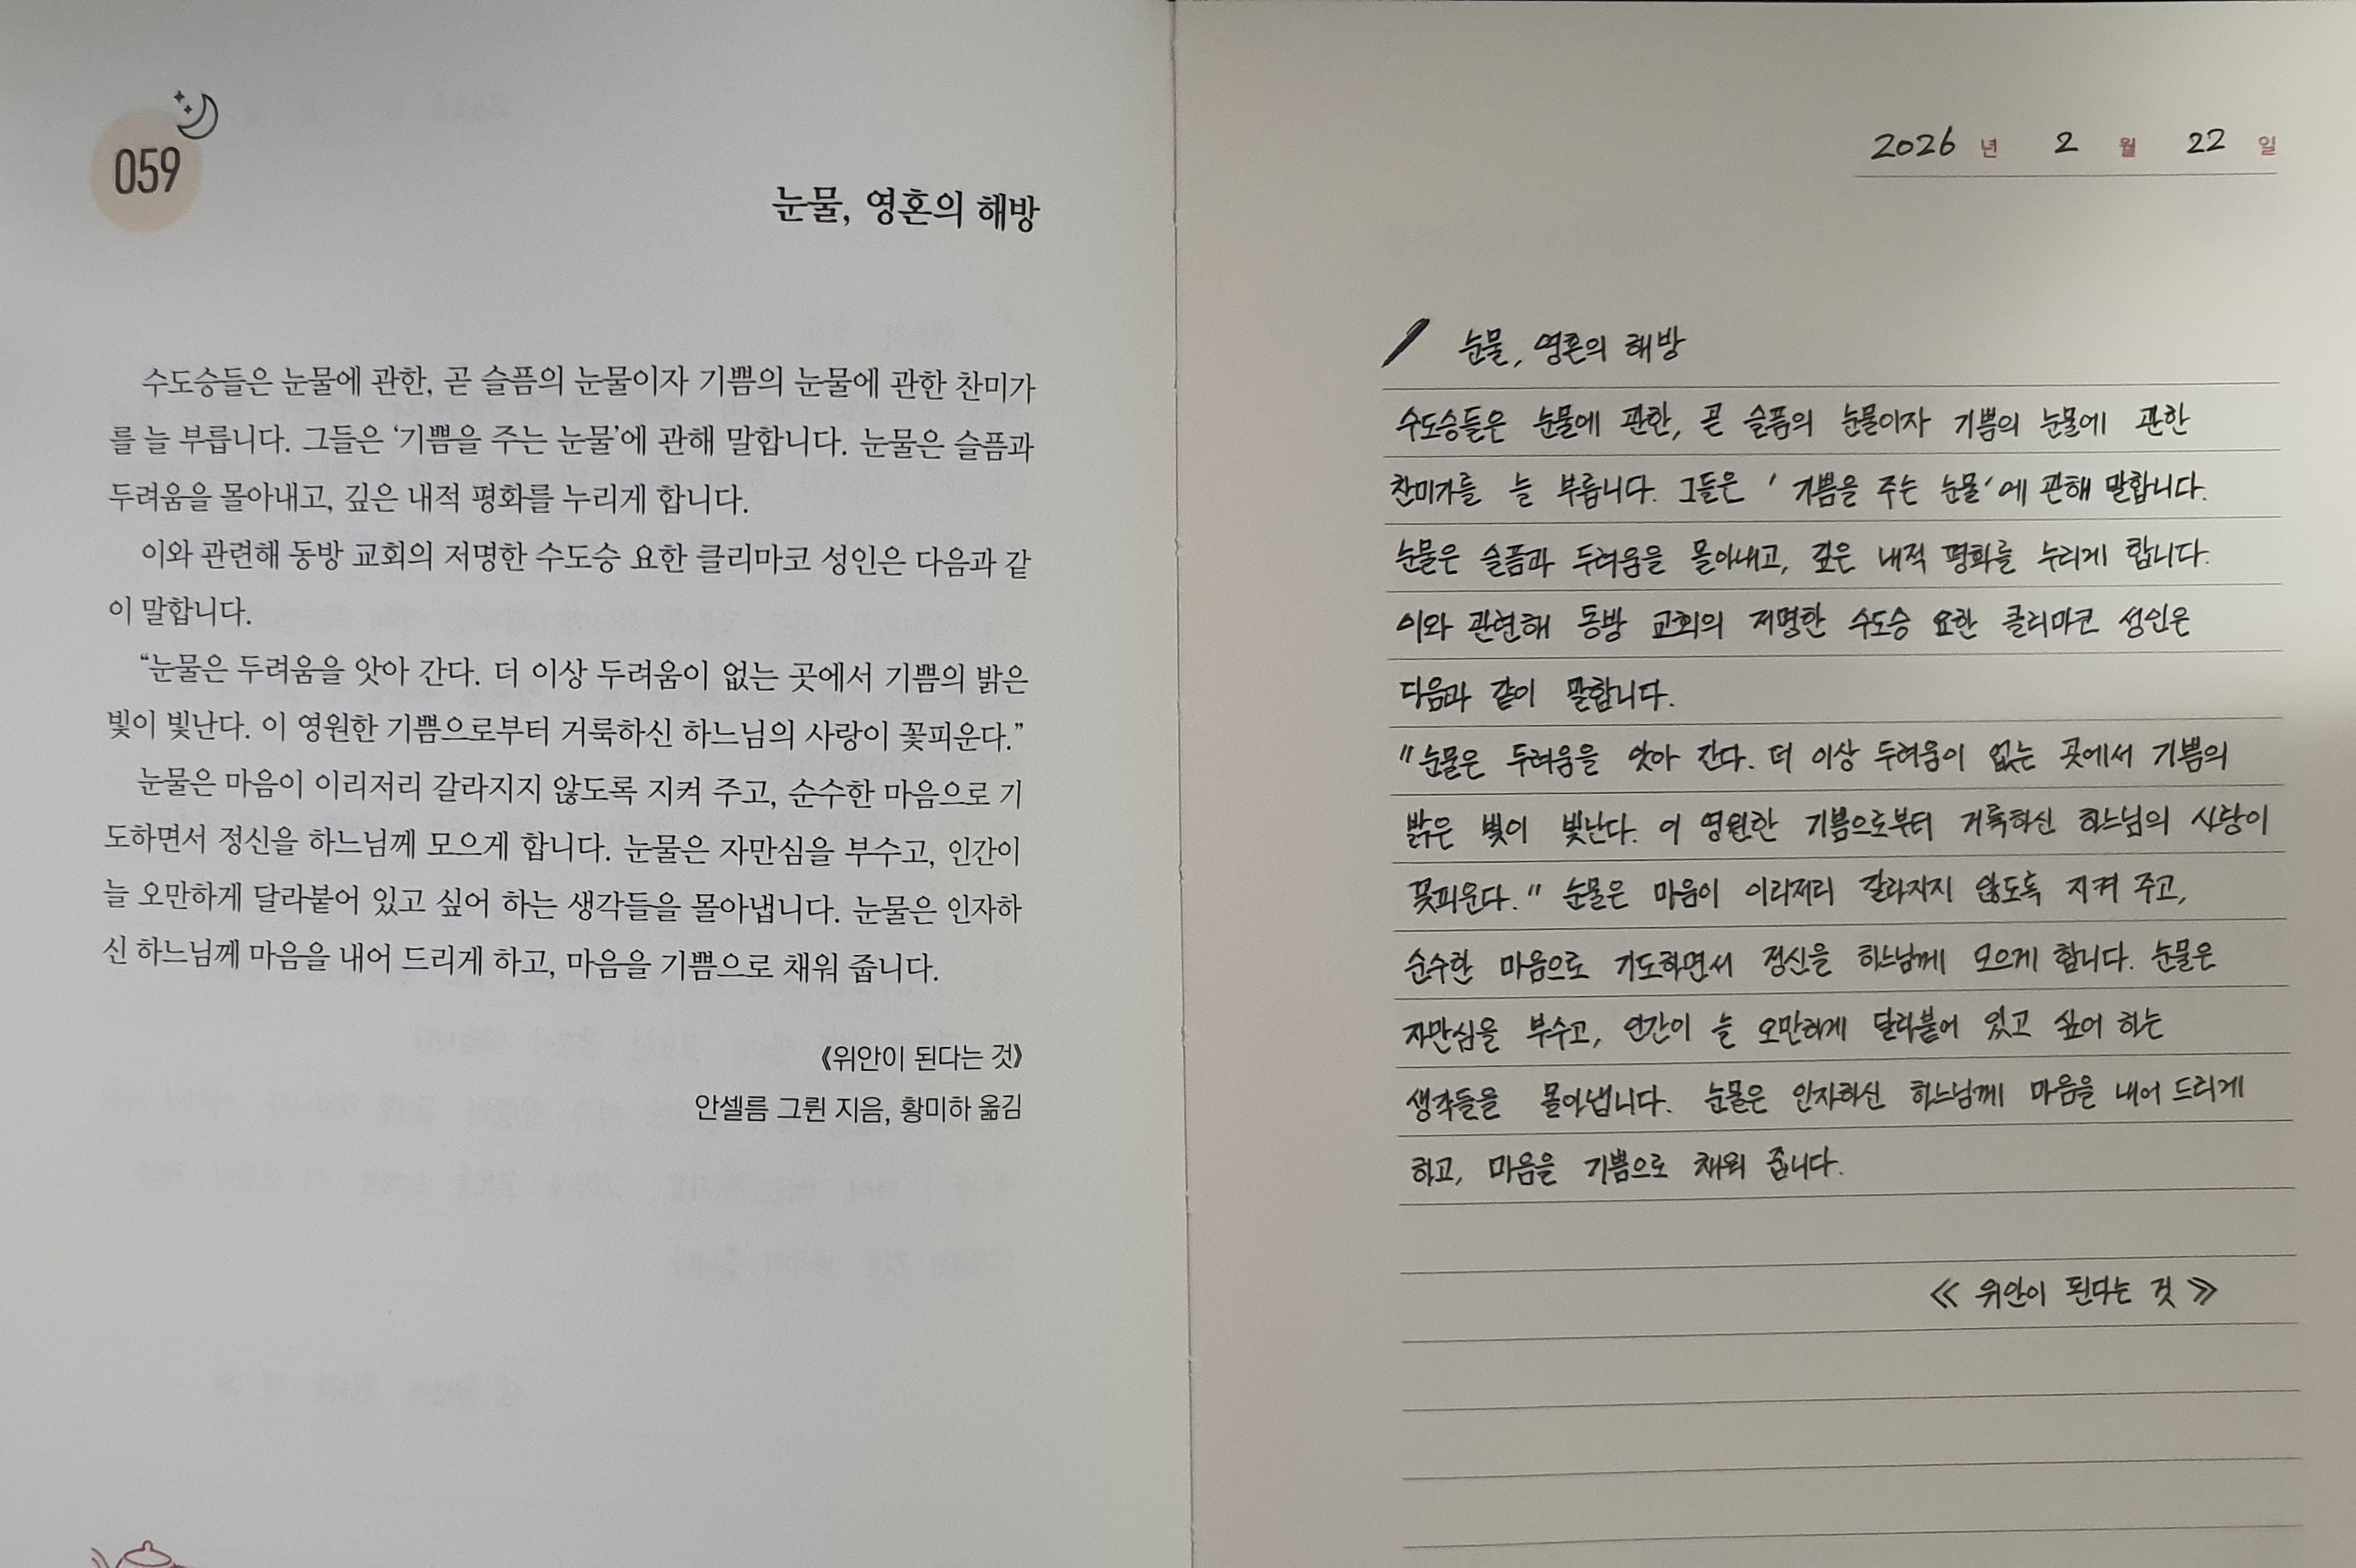 059
눈물, 영혼의 해방
수도승들은 눈물에 관한, 곧 슬픔의 눈물이자 기쁨의 눈물에 관한 찬미가
를 늘 부릅니다. 그들은 ‘기쁨을 주는 눈물’에 관해 말합니다. 눈물은 슬픔과
두려움을 몰아내고, 깊은 내적 평화를 누리게 합니다.
이와 관련해 동방 교회의 저명한 수도승 요한 클리마코 성인은 다음과 같
이 말합니다.
“눈물은 두려움을 앗아 간다. 더 이상 두려움이 없는 곳에서 기쁨의 밝은
빛이 빛난다. 이 영원한 기쁨으로부터 거룩하신 하느님의 사랑이 꽃피운다.”
눈물은 마음이 이리저리 갈라지지 않도록 지켜 주고, 순수한 마음으로 기
도하면서 정신을 하느님께 모으게 합니다. 눈물은 자만심을 부수고, 인간이
늘 오만하게 달라붙어 있고 싶어 하는 생각들을 몰아냅니다. 눈물은 인자하
신 하느님께 마음을 내어 드리게 하고, 마음을 기쁨으로 채워 줍니다.
《위안이 된다는 것》
안셀름 그륀 지음, 황미하 옮김
2026 년 2 월 22 일
눈물, 영혼의 해방
수도승들은 눈물에 관한, 곧 슬픔의 눈물이자 기쁨의 눈물에 관한
찬미가를 늘 부릅니다. 그들은 '기쁨을 주는 눈물'에 관해 말합니다.
눈물은 슬픔과 두려움을 몰아내고, 깊은 내적 평화를 누리게 합니다.
이와 관련해 동방 교회의 저명한 수도승 요한 클리마코 성인은
다음과 같이 말합니다.
"눈물은 두려움을 앗아 간다. 더 이상 두려움이 없는 곳에서 기쁨의
밝은 빛이 빛난다. 이 영원한 기쁨으로부터 거룩하신 하느님의 사랑이
꽃피운다." 눈물은 마음이 이리저리 갈라지지 않도록 지켜 주고,
순수한 마음으로 기도하면서 정신을 하느님께 모으게 합니다. 눈물은
자만심을 부수고, 인간이 늘 오만하게 달라붙어 있고 싶어 하는
생각들을 몰아냅니다. 눈물은 인자하신 하느님께 마음을 내어 드리게
하고, 마음을 기쁨으로 채워 줍니다.
≪ 위안이 된다는 것 ≫